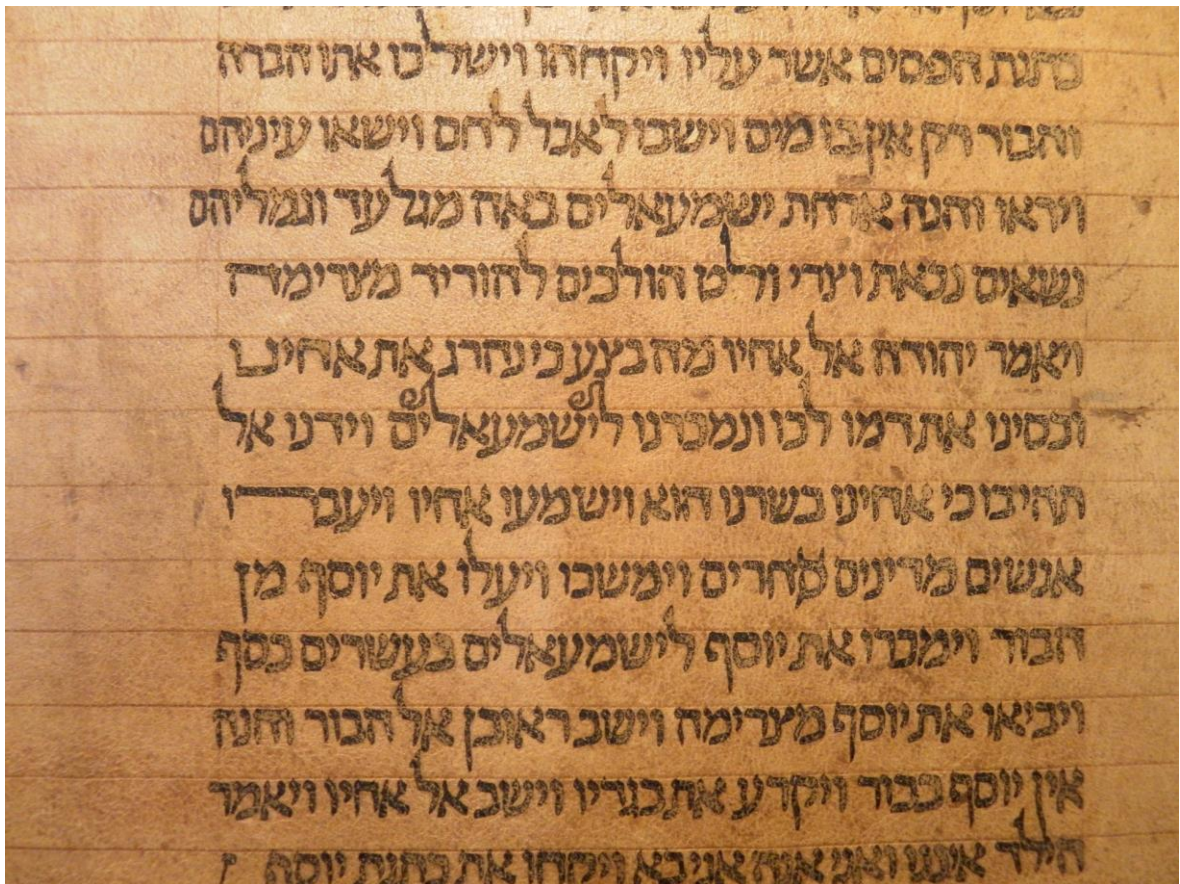 כתנת הפסים אשר עליו ויקחהו וישלכו אתו הברה
והבור רק אין בו מים וישבו לאכל לחם וישאו עיניהם
ויראו והנה ארחת ישמעאלים באה מגלעד וגמליהם
נשאים נכאת וצרי ולט הולכים להוריד מצרימה
ויאמר יהודה אל אחיו מה בצע כי נהרג את אחינו
וכסינו את דמו לכו ונמכרנו לישמעאלים וידנו אל
תהי בו כי אחינו בשרנו הוא וישמעו אחיו ויעברו
אנשים מדינים סחרים וימשכו ויעלו את יוסף מן
הבור וימכרו את יוסף לישמעאלים בעשרים כסף
ויביאו את יוסף מצרימה וישב ראובן אל הבור והנה
אין יוסף בבור ויקרע את בגדיו וישב אל אחיו ויאמר
הילד איננו ואני אנה אני בא ויקחו את כתנת יוסף